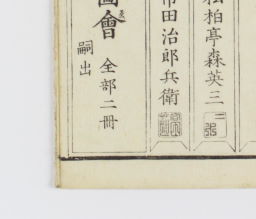 松柏亭森英三
市田治郎兵衛
圖會
嗣出
全部二冊